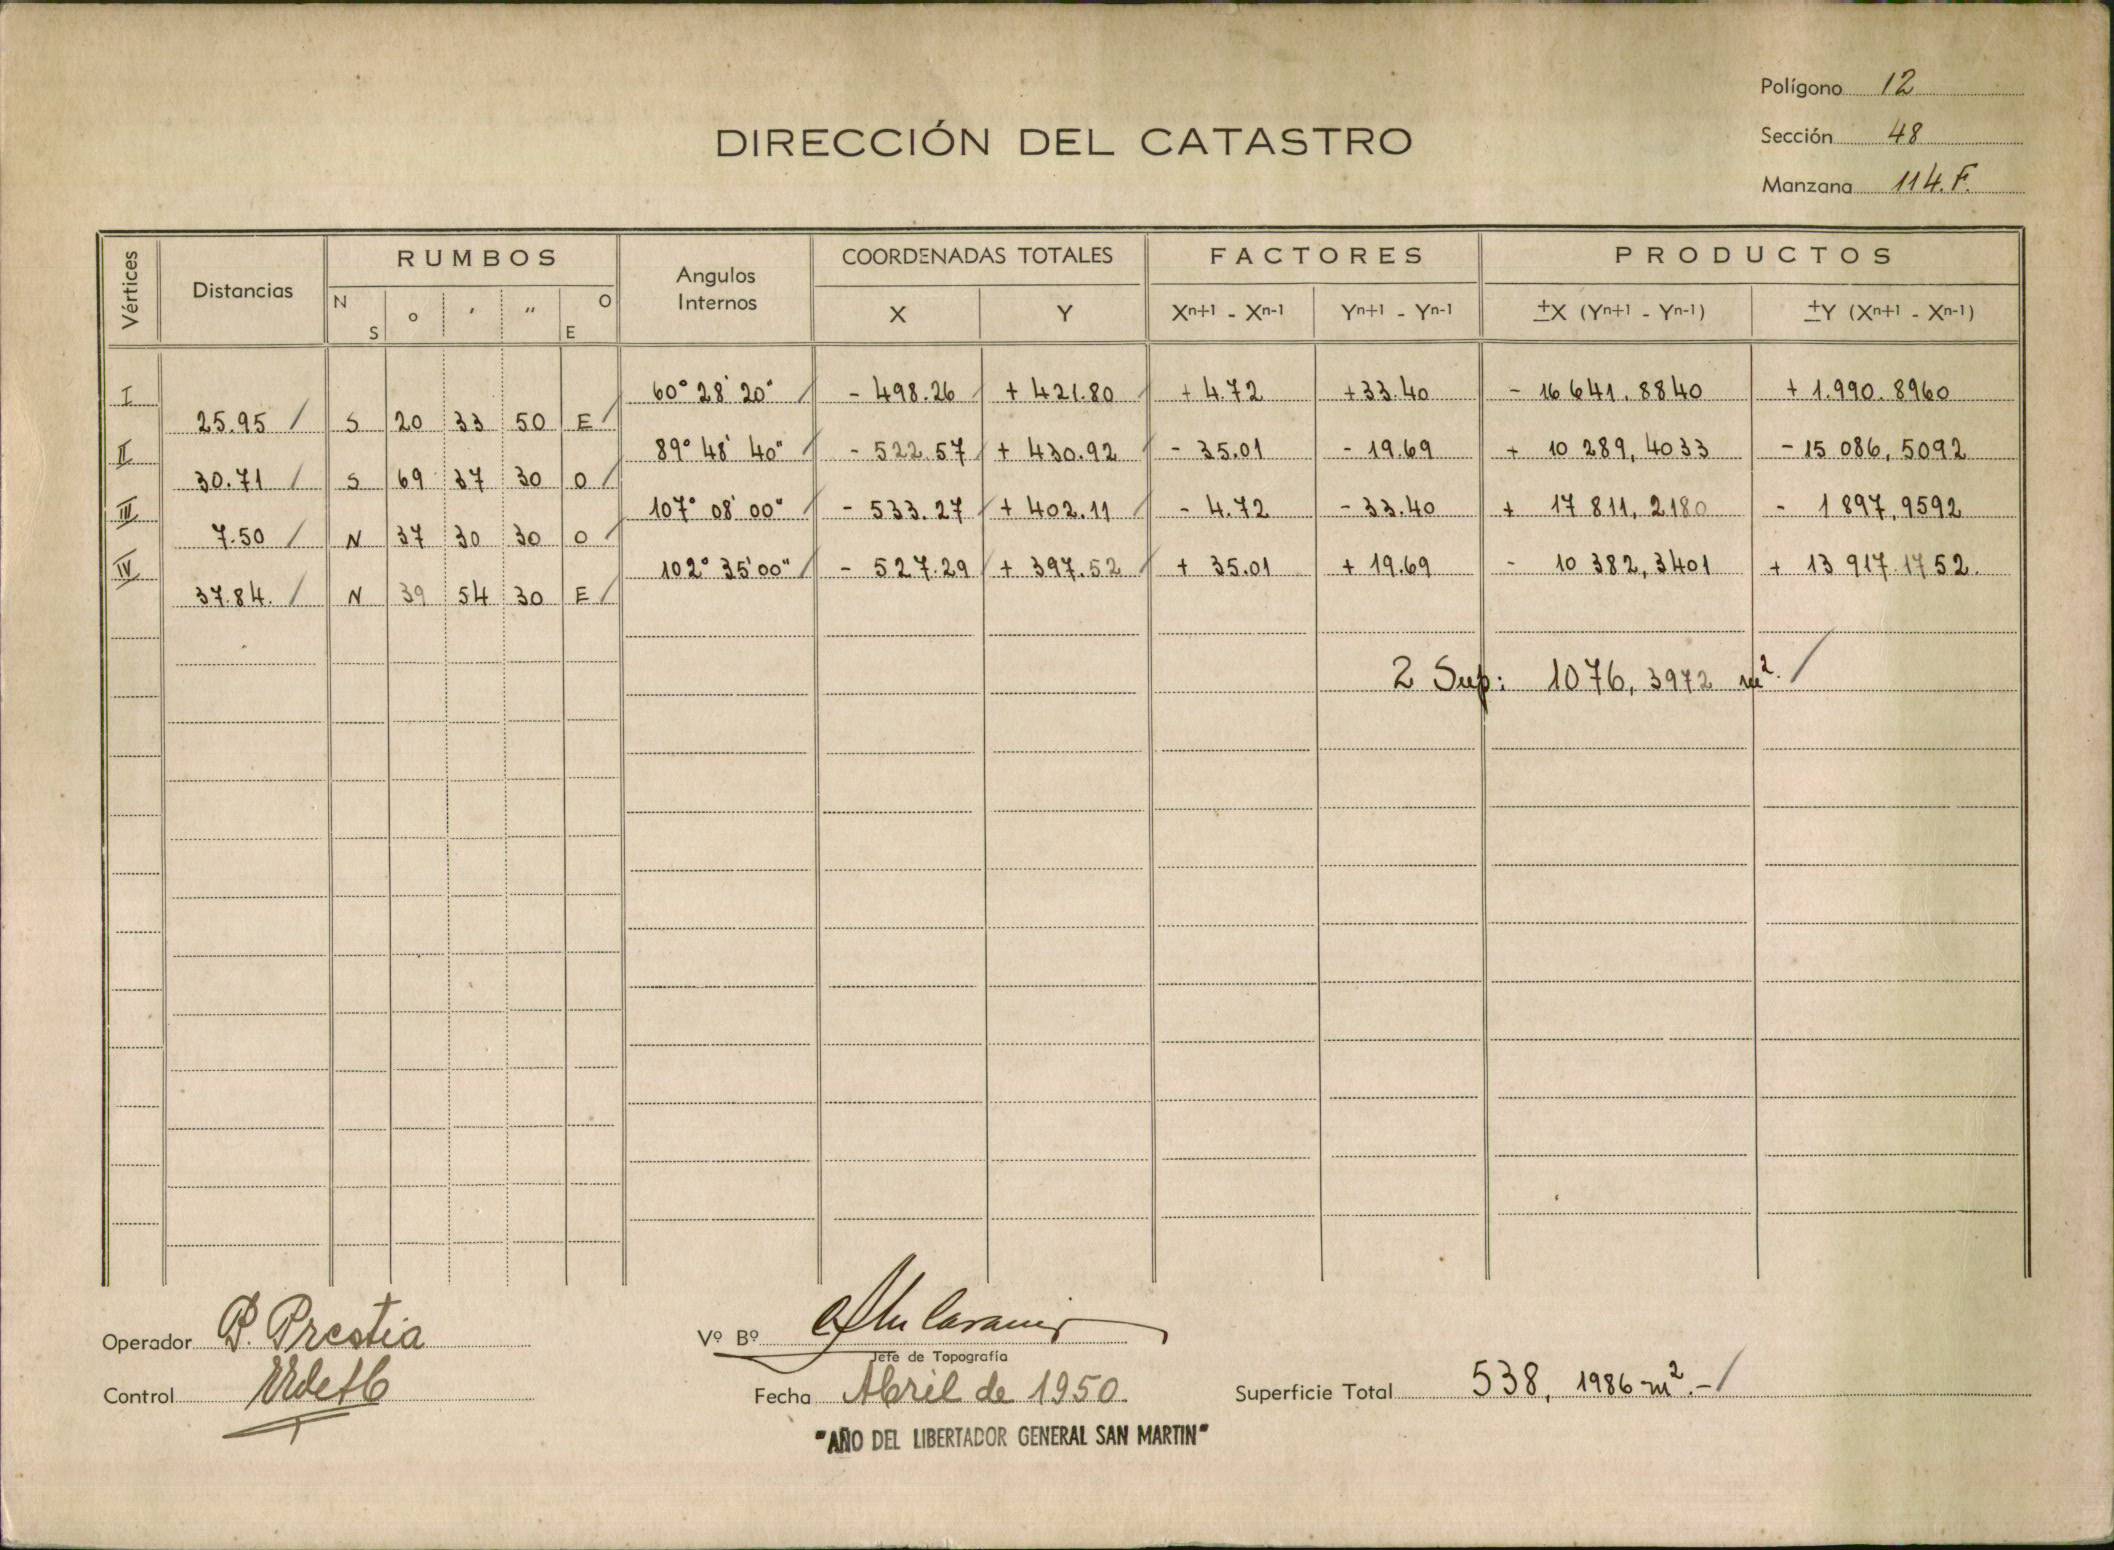 Polígono 12
DIRECCIÓN DEL CATASTRO
Sección 48
Manzana 114.F.
Vértices Distancias RUMBOS Angulos Internos COORDENADAS TOTALES FACTORES PRODUCTOS
N S o ' " O E X Y Xn+1 - Xn-1 Yn+1 - Yn-1 ±X (Yn+1 - Yn-1) ±Y (Xn+1 - Xn-1)
I 60° 28' 20" - 498.26 + 421.80 + 4.72 +33.40 - 16 641.8840 + 1.990.8960
25.95 S 20 33 50 E
II 89° 48' 40" - 522.57 + 430.92 - 35.01 - 19.69 + 10 289,4033 - 15 086,5092
30.71 S 69 37 30 O
III 107° 08' 00" - 533.27 + 402.11 - 4.72 - 33.40 + 17 811,2180 - 1 897,9592
7.50 N 37 30 30 O
IV 102° 35' 00" - 527.29 + 397.52 + 35.01 + 19.69 - 10 382,3401 + 13 917.1752.
37.84. N 39 54 30 E
2 Sup: 1076,3972 m².
Operador P. Prestia
Vº Bº
Jefe de Topografía
Control
Fecha Abril de 1950.
Superficie Total 538,1986 m².-
"AÑO DEL LIBERTADOR GENERAL SAN MARTIN"